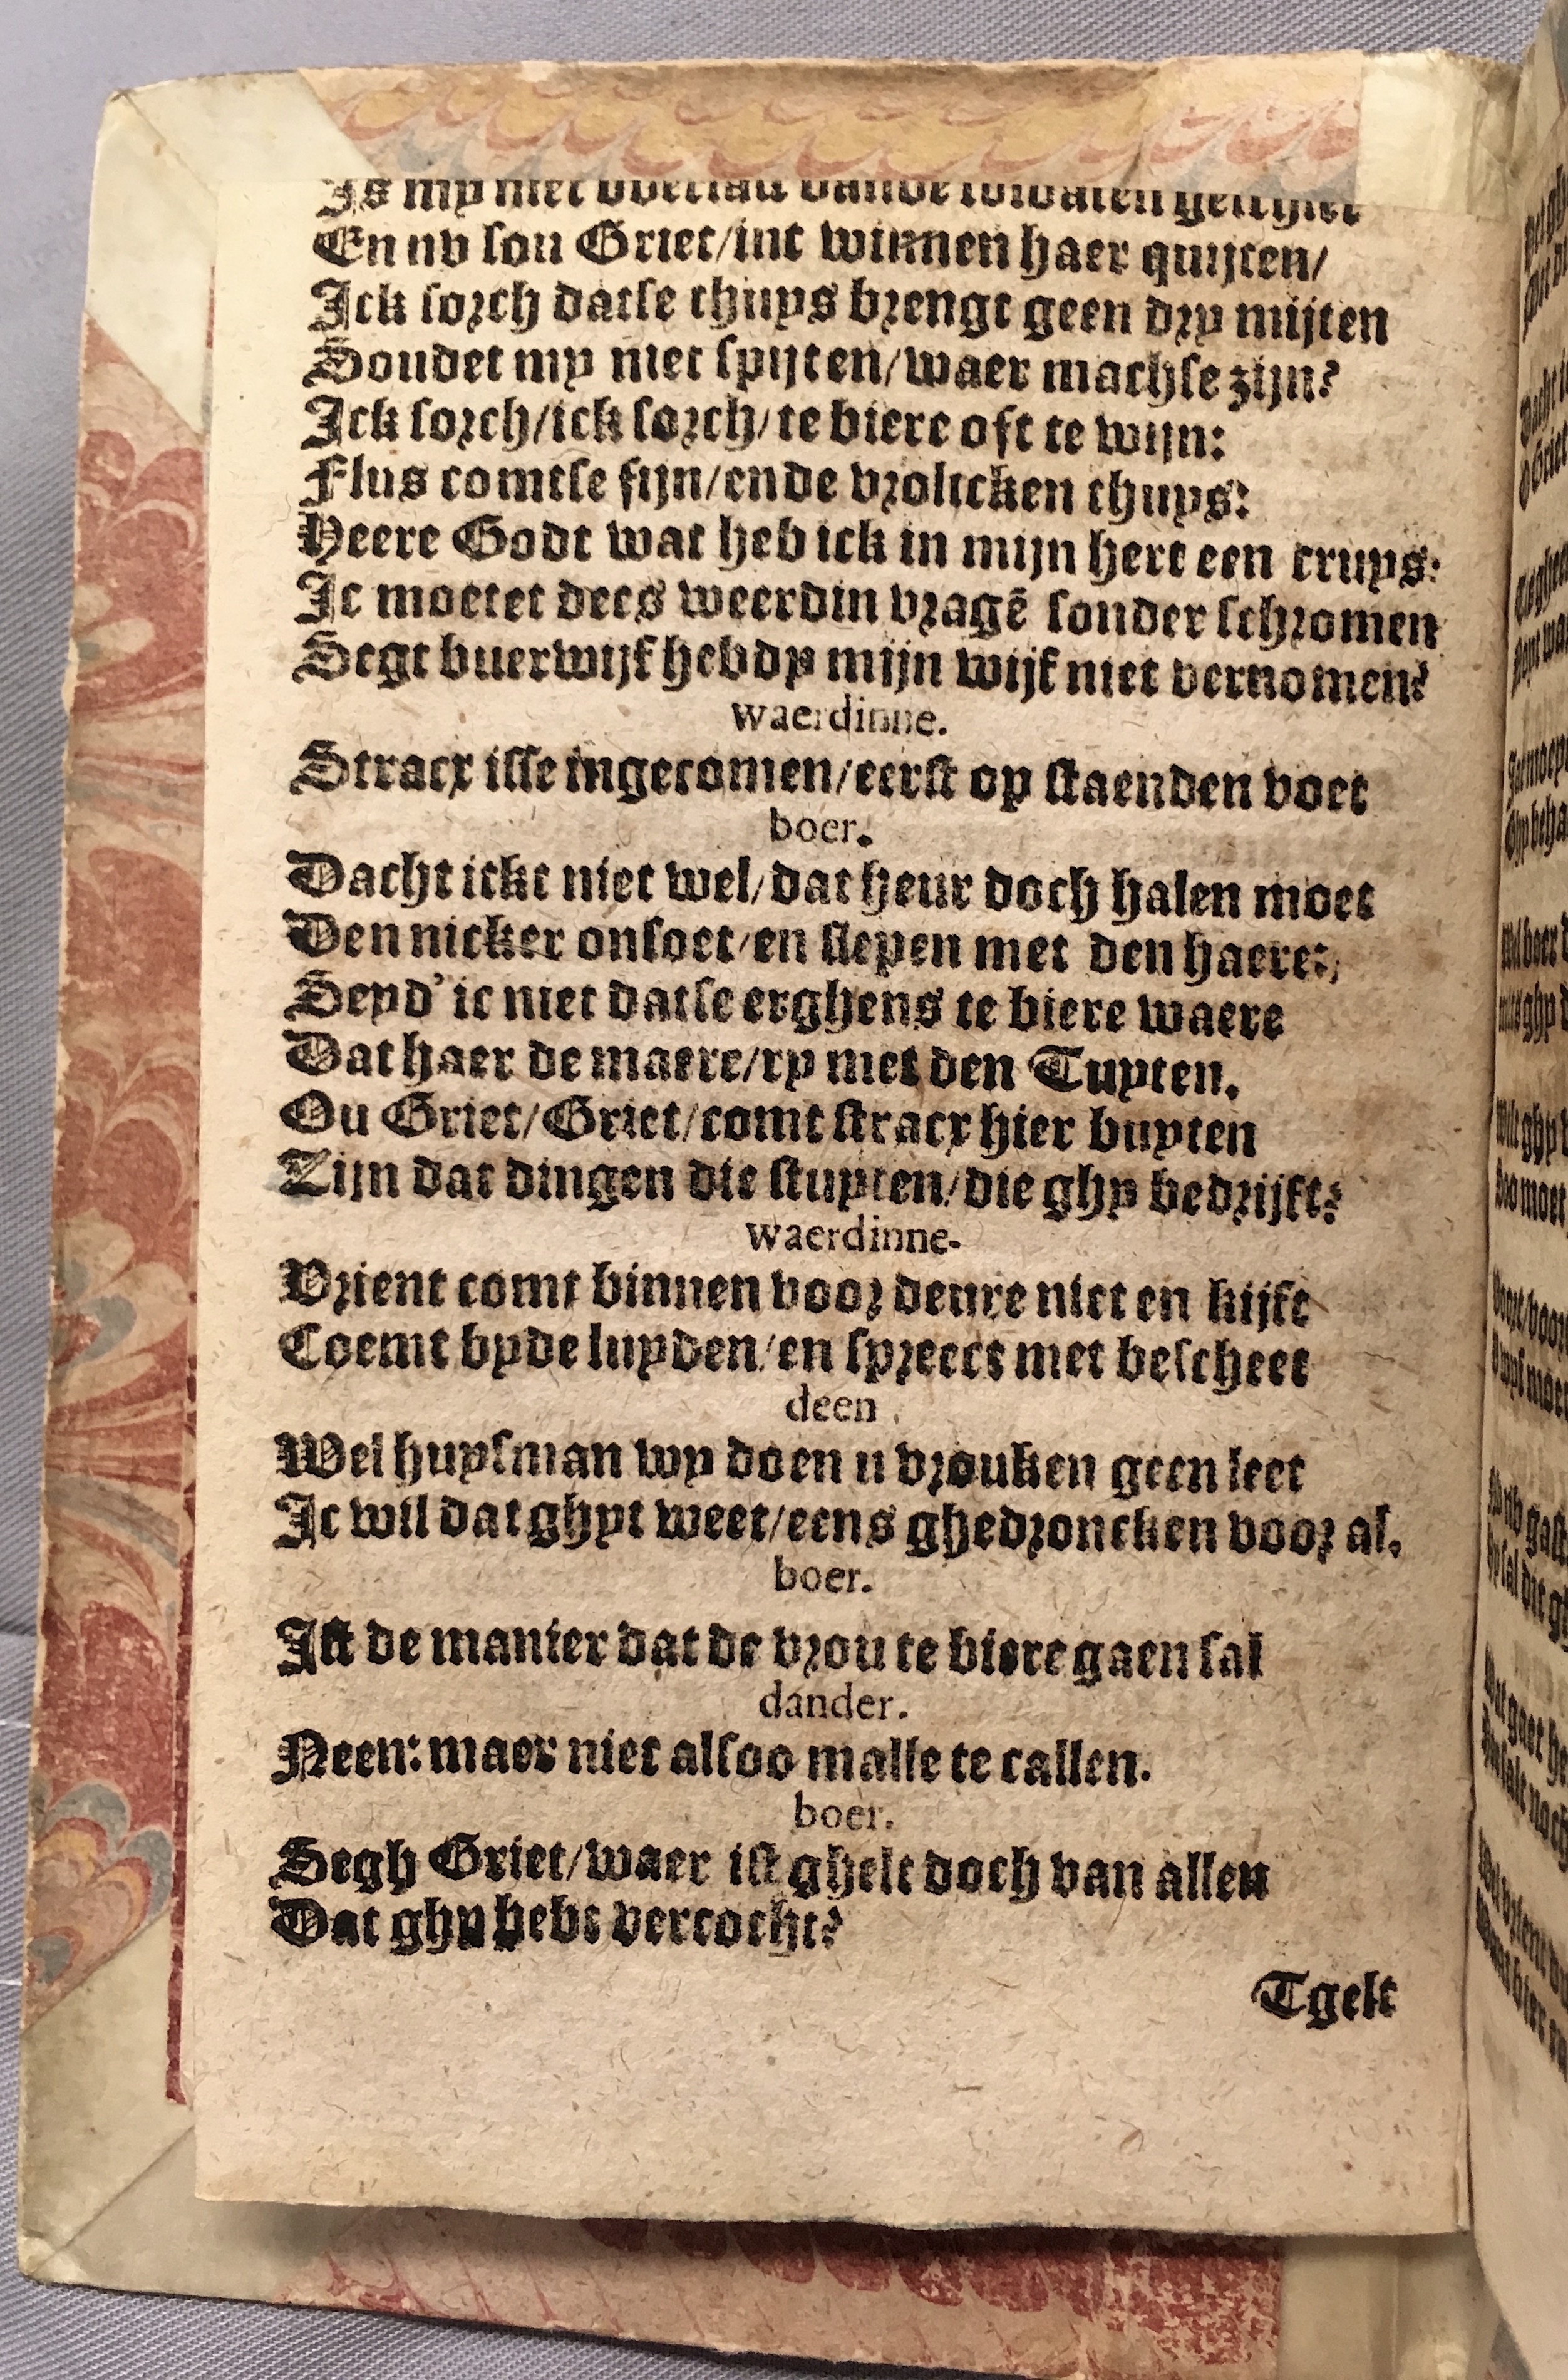 Is my niet overlast vande soldaten geschiet
En nv sou Griet/int winnen haer quijten/
Ick sorch datse thuys brengt geen dry mijten
Soudet my niet spijten/waer machse zijn?
Ick sorch/ick sorch/te biere oft te wijn:
Flus comtse fijn/ende vrolicken thuys:
Heere Godt wat heb ick in mijn hert een cruys:
Ic moetet dees weerdin vragē sonder schromen
Segt buerwijf hebdy mijn wijf niet vernomen?
waerdinne.
Stracx isse ingecomen/eerst op staenden voet
boer.
Dacht ickt niet wel/dat heur doch halen moet
Den nicker onsoet/en slepen met den haere:
Seyd' ic niet datse erghens te biere waere
Dat haer de maere/ry met den Tuyten.
Ou Griet/Griet/comt stracx hier buyten
Zijn dat dingen die stuyten/die ghy bedrijft?
waerdinne.
Vrient comt binnen voor deure niet en kijft
Coemt byde luyden/en spreect met bescheet
deen.
Wel huysman wy doen u vrouken geen leet
Ic wil dat ghyt weet/eens ghedroncken voor al.
boer.
Ist de manier dat de vrou te biere gaen sal
dander.
Neen: maer niet alsoo malle te callen.
boer.
Segh Griet/waer ist ghelt doch van allen
Dat ghy hebt vercocht?
Tgelt